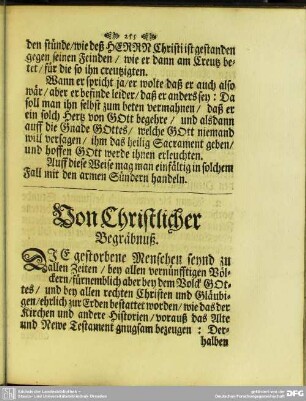 251
den stünde/wie deß HERRN Christi ist gestanden
gegen seinen Feinden / wie er dann am Creutz be-
tet/ für die so ihn creutzigten.
Wann er spricht ja/ er wolte daß er auch also
wär/ aber er befinde leider/ daß er anders sey : Da
soll man ihn selbst zum beten vermahnen/ daß er
ein solch Hertz von GOtt begehre / und alsdann
auff die Gnade GOttes/ welche GOtt niemand
will versagen/ ihm das heilig Sacrament geben/
und hoffen GOtt werde ihnen erleuchten.
Auff diese Weise mag man einfältig in solchem
Fall mit den armen Sündern handeln.
Von Christlicher
Begräbnuß.
DIE gestorbene Menschen seynd zu
allen Zeiten / bey allen vernünfftigen Völ-
ckern/ fürnemblich aber bey dem Volck GOt-
tes/ und bey allen rechten Christen und Gläubi-
gen/ ehrlich zur Erden bestattet worden/ wie das der
Kirchen und andere Historien/ vorauß das Alte
und Newe Testament gnugsam bezeugen : Der-
halben